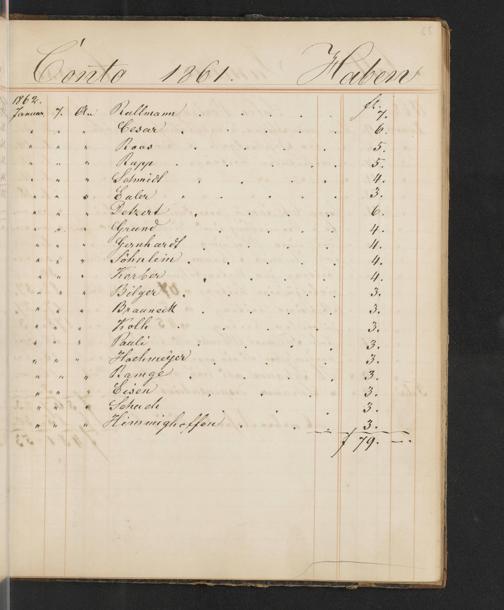 Conto 1861. Haben
1862. fl.
Januar 7. An Rullmann 7.
" " " Cesar 6.
" " " Roos 5.
" " " Rupp 5.
" " " Schmidt 4.
" " " Euler 3.
" " " Detzert 6.
" " " Grund 4.
" " " Gernhardt 4.
" " " Söhnlein 4.
" " " Korber 4.
" " " Bilger 3.
" " " Brauneck 3.
" " " Kolb 3.
" " " Pauli 3.
" " " Hochmeijer 3.
" " " Ramge 3.
" " " Eisen 3.
" " " Schuch 3.
" " " Himmighoffen 3.
f 79. —